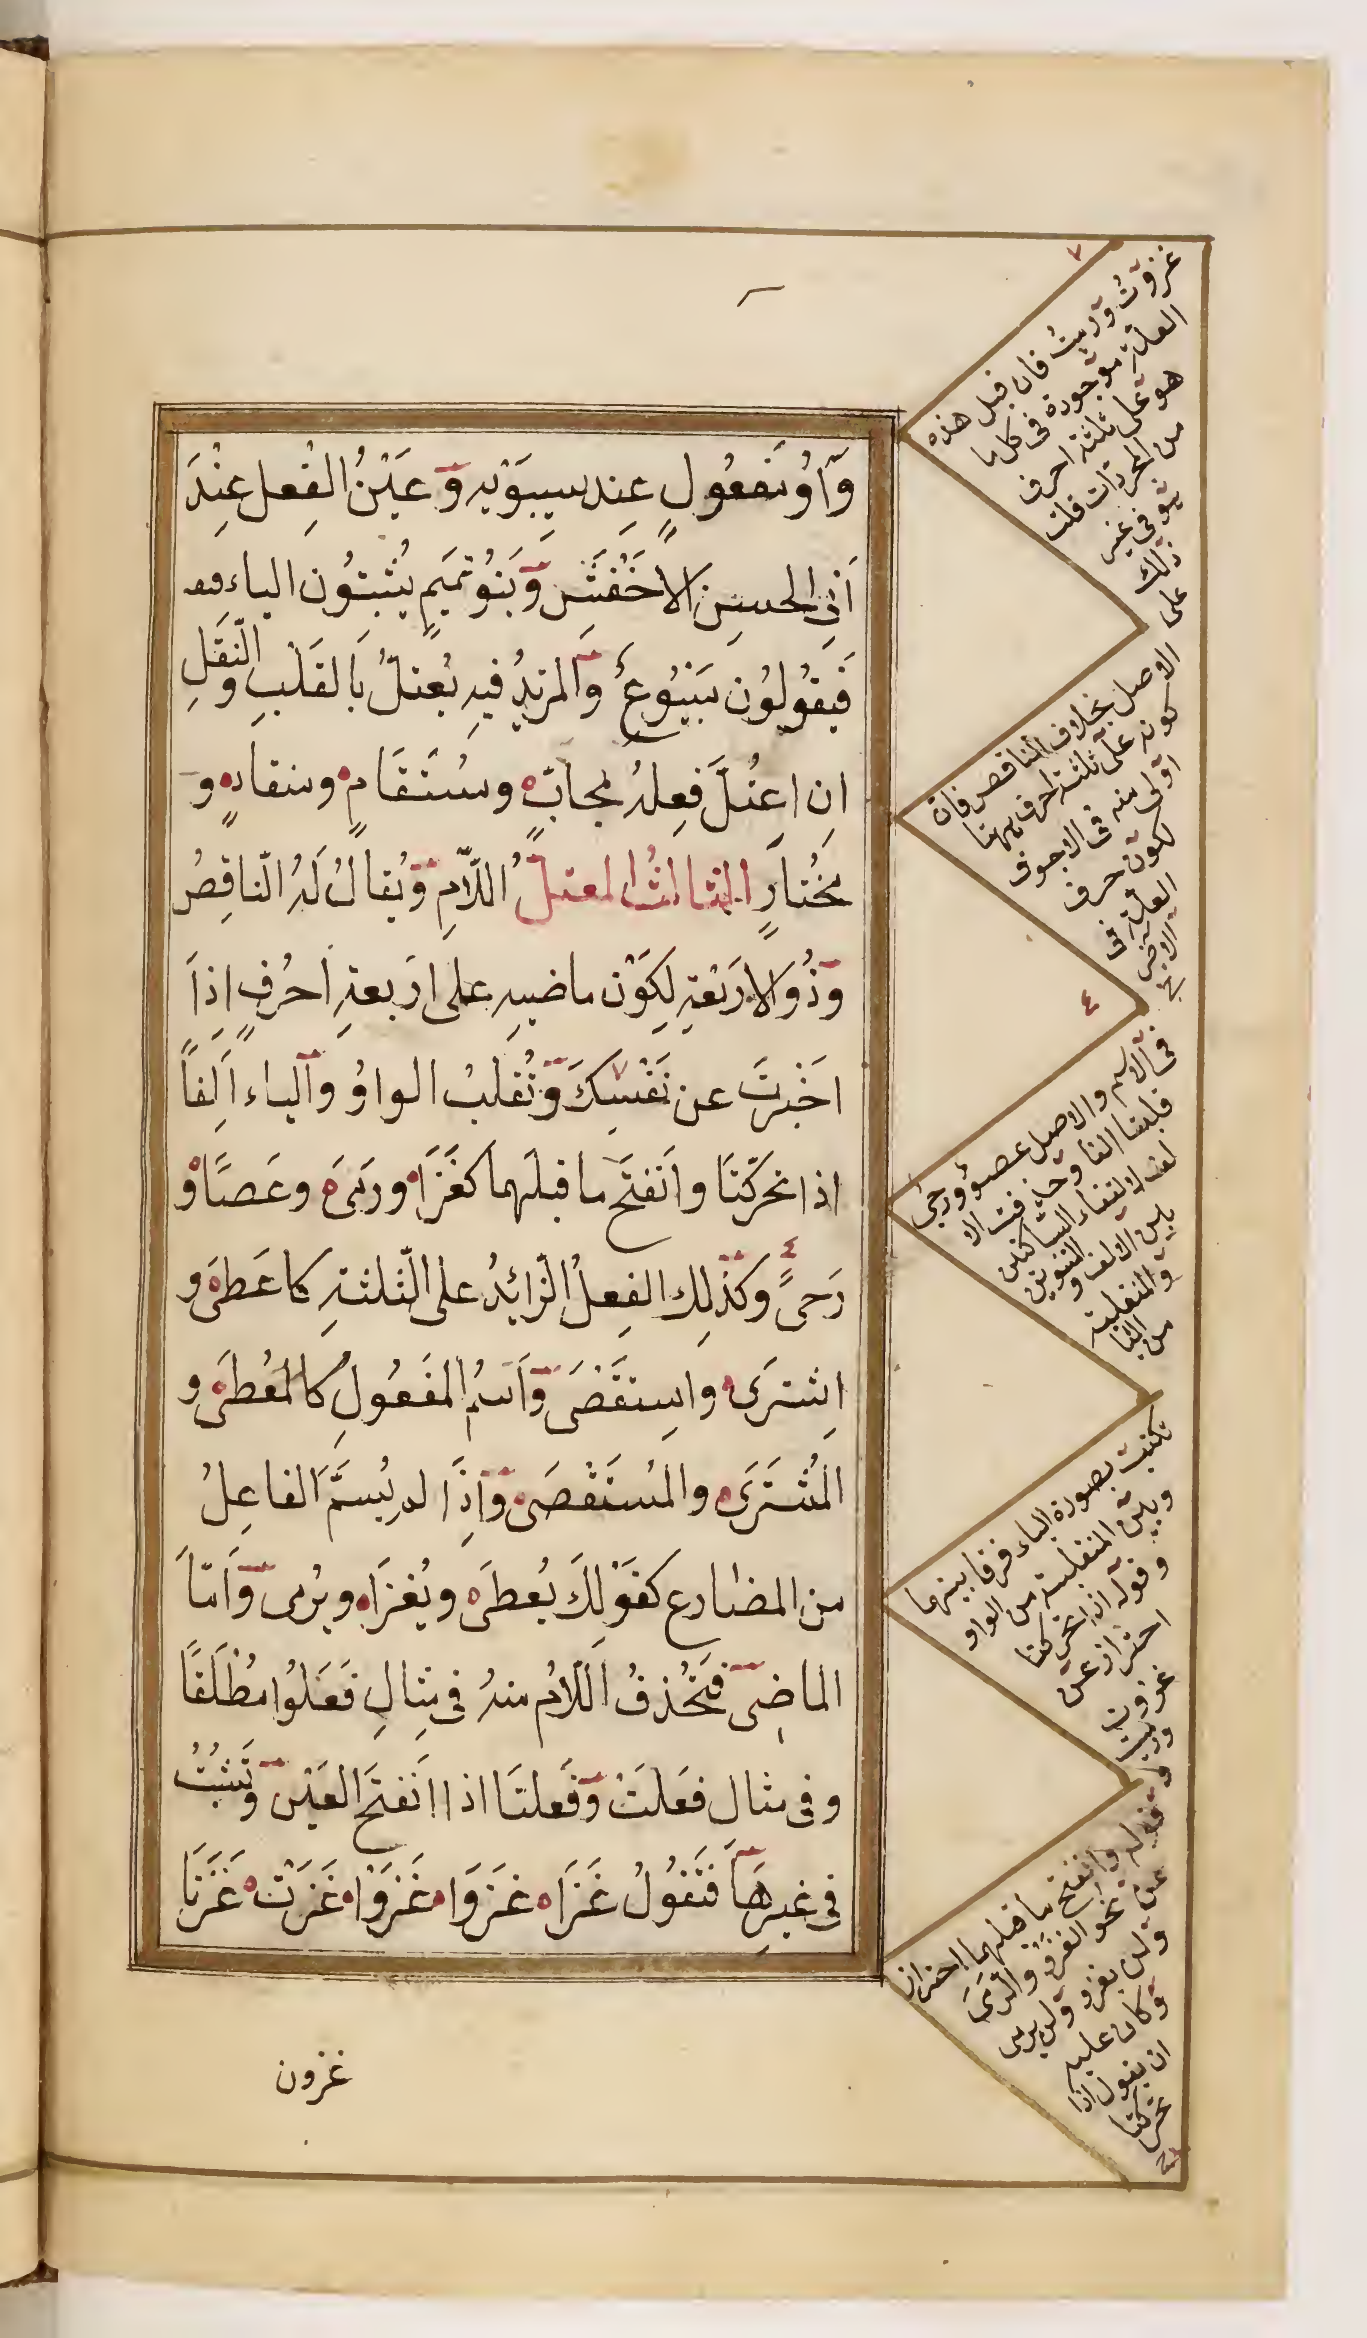 وَاوُ مَفعُولٍ عِند سيبَوَيه وَ عَيْنُ الفِعل عِنْدَ
اَبِى الحسنِ الاَخْفَشِ وَبَنُو تميَمٍ يُثبِتُون الياء
فَيقوُلوُن مَبيُوعٌ وَالمزيدُ فيهِ يُعتلُّ بَالقَلْبِ وَالنّقَلِ
اِن اعتُلَّ فعِلهُ كمجابٍ ومُستَقَامٍ ومنقادٍ و
مخُتارٍ الثالثُ المعتلّ اللّامِ وَيُقالُ لَهُ النّاقِصُ
وَذُو الاَرَبَعَةِ لِكَوْن ماضيهِ على اَربعةِ اَحرُفٍ اِذاَ
اَخَبرتَ عن نَفْسِكَ وَتُقلبُ الواوُ وَالياء اَلِفاً
اذا تحرّكَتَا وانَفتَحَ ما قبلَهما كغَزَا ورَمَى وعَصًا و
رَحىً وكَذلِك الفِعلُ الزّائِدُ على الثّلثةِ كاعَطى و
اِشترَى واسِتقَصَى وَاسَمُ المفَعُولِ كالمُعطى و
المُشتَرَى والمُستَقْصَى وَاِذَا لم يُسَمَّ الفاعِلُ
من المضارع كقوَلِكَ يُعطَى ويُغزَا ويُرمى وَاَمّاَ
الماضِى فَتحُذفُ اللّامُ منهُ فى مِثالِ فَعَلُوا مُطْلَقًا
وفى مثال فعَلَتْ وَفَعلتَا اذا انَفتَحَ العَيْن وَتَثبُتُ
فى غيرِهَا فَتقوُلُ غَزَا غَزَوَا غَزَوْا غَزَتْ غَزَتَا
غزون
غزوتُ ورميتُ فان قيل هذه
العلّة موجودة فى كل ما
هو على ثلثة احرف
من المجردات قلت
هو فى غير
ذلك
على
الاصل بخلاف الناقص فان
كونه على ثلثة احرف ههنا
اولى منه فى الاجوف
لكون حرف
العلّة فى
الآخر
فى الاسم والاصل عصوٌ ورحىٌ
قلبتا الفا وحذفت الا
لف لالتقاء الساكنين
بين الالف و التنوين
والمنقلبة
من اليا
تكتب بصورة الياء فرقا بينهما
وبين المنقلبة من الواو
وقوله اذا تحركتا
احتراز عن
غزوت
ورميت
وقوله وانفتح ما قبلهما احتراز
عن نحو الغزو والرمى
ولن يغزو ولن يرمى
وكان عليه
ان يقول اذا
تحركتا